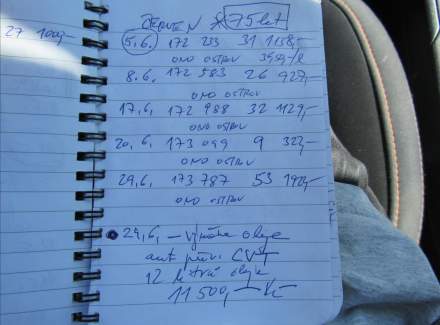 27 1009,-
ČERVEN * 75 let
5,6, 172 233 31 1158,-
ONO OSTROV
8,6, 172 583 26 927,-
ONO OSTROV
17,6, 172 988 32 1129,-
ONO OSTROV
20,6, 173 099 9 323,-
ONO OSTROV
29,6, 173 787 53 1924,-
ONO OSTROV
29,6, - výměna oleje
aut. přev. CVT
12 litrů oleje
11 500,- Kč